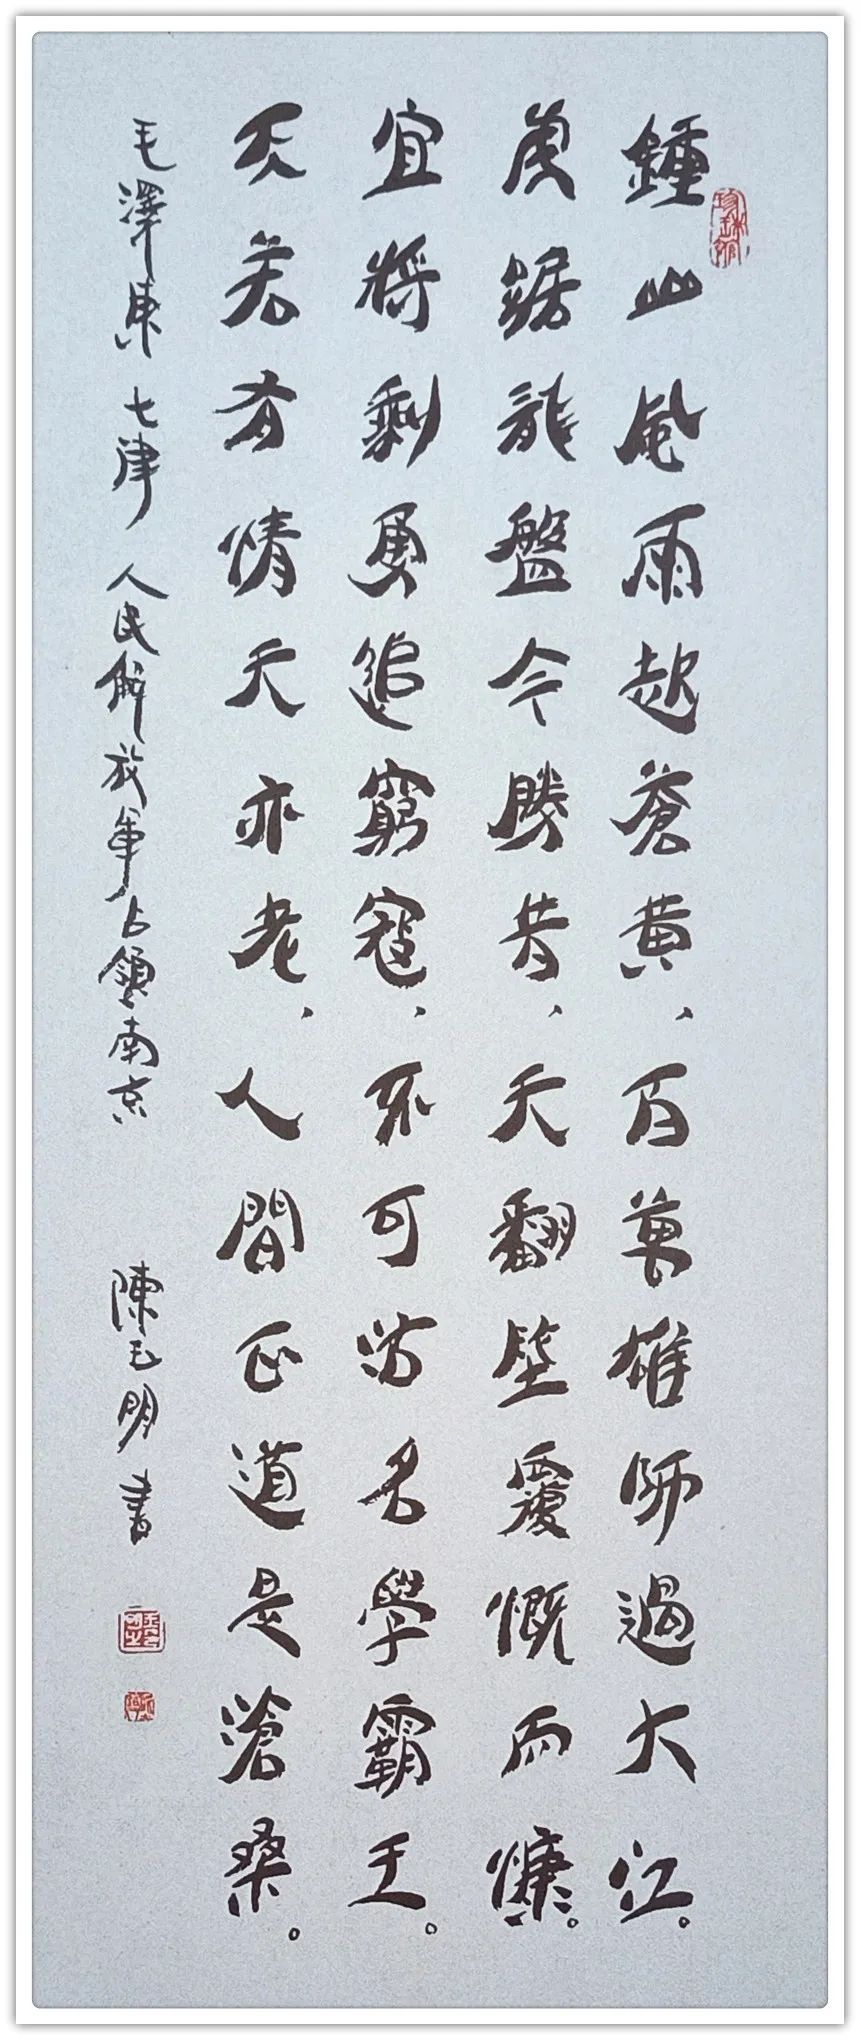 鍾山風雨起蒼黃、百萬雄師過大江。
虎踞龍盤今勝昔、天翻地覆慨而慷。
宜將剩勇追窮寇、不可沽名學霸王。
天若有情天亦老、人間正道是滄桑。
毛澤東 七律 人民解放軍占領南京 陳明書